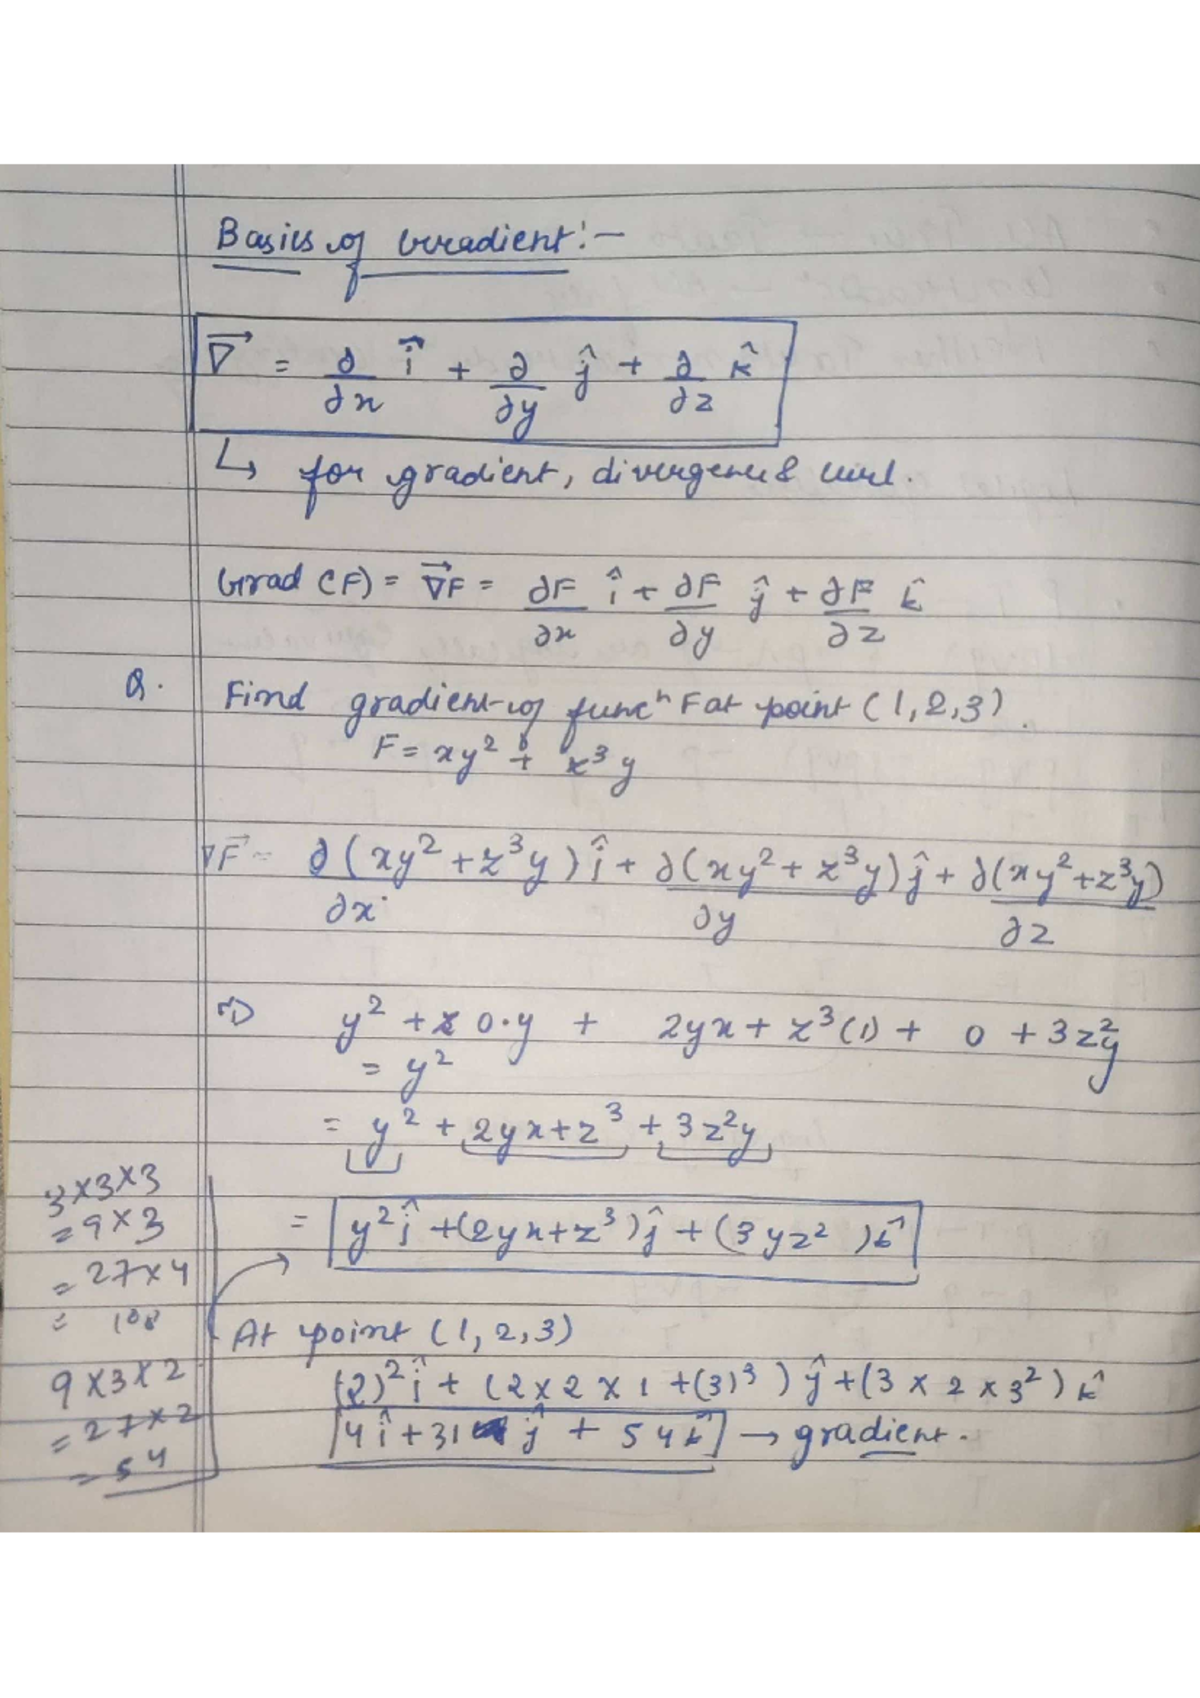 Basics of Gradient :-
∇⃗ = ∂/∂x î + ∂/∂y ĵ + ∂/∂z k̂
↳ for gradient, divergence & curl.
Grad (F) = ∇⃗F = ∂F/∂x î + ∂F/∂y ĵ + ∂F/∂z k̂
Q. Find gradient of funcⁿ F at point (1,2,3).
F = xy² + z³y
∇F⃗ = ∂(xy² + z³y)/∂x î + ∂(xy² + z³y)/∂y ĵ + ∂(xy² + z³y)/∂z
⇒ y² + 0·y + 2yx + z³(1) + 0 + 3z²y
= y²
= y² + 2yx + z³ + 3z²y
= y²î + (2yx + z³)ĵ + (3yz²)k̂
3×3×3
= 9×3
= 27×4
= 108
At point (1,2,3)
(2)²î + (2×2×1 + (3)³)ĵ + (3×2×3²)k̂
4î + 31ĵ + 54k̂ → gradient.
9×3×2
= 27×2
= 54